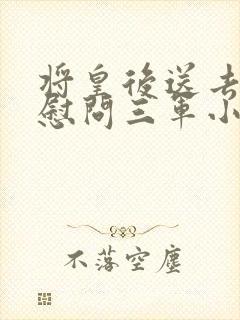 将皇後送去
慰問三軍小
不落空塵